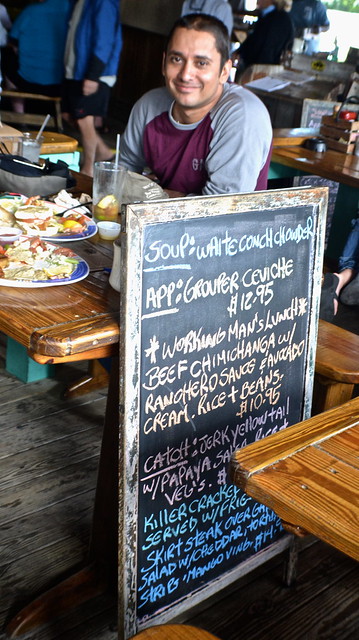 SOUP: WHITE CONCH CHOWDER
APP: GROUPER CEVICHE
$12.95
* WORKING MAN'S LUNCH *
BEEF CHIMICHANGA W/
RANCHERO SAUCE & AVOCADO
CREAM. RICE + BEANS.
$10.95
CATCH: JERK YELLOWTAIL
W/ PAPAYA SALSA RICE &
VEG'S. $
KILLER CRACKE
SERVED W/ FRIE
SKIRT STEAK OVER
SALAD W/ CHEDDAR,
STRIPS. MANGO VINO.